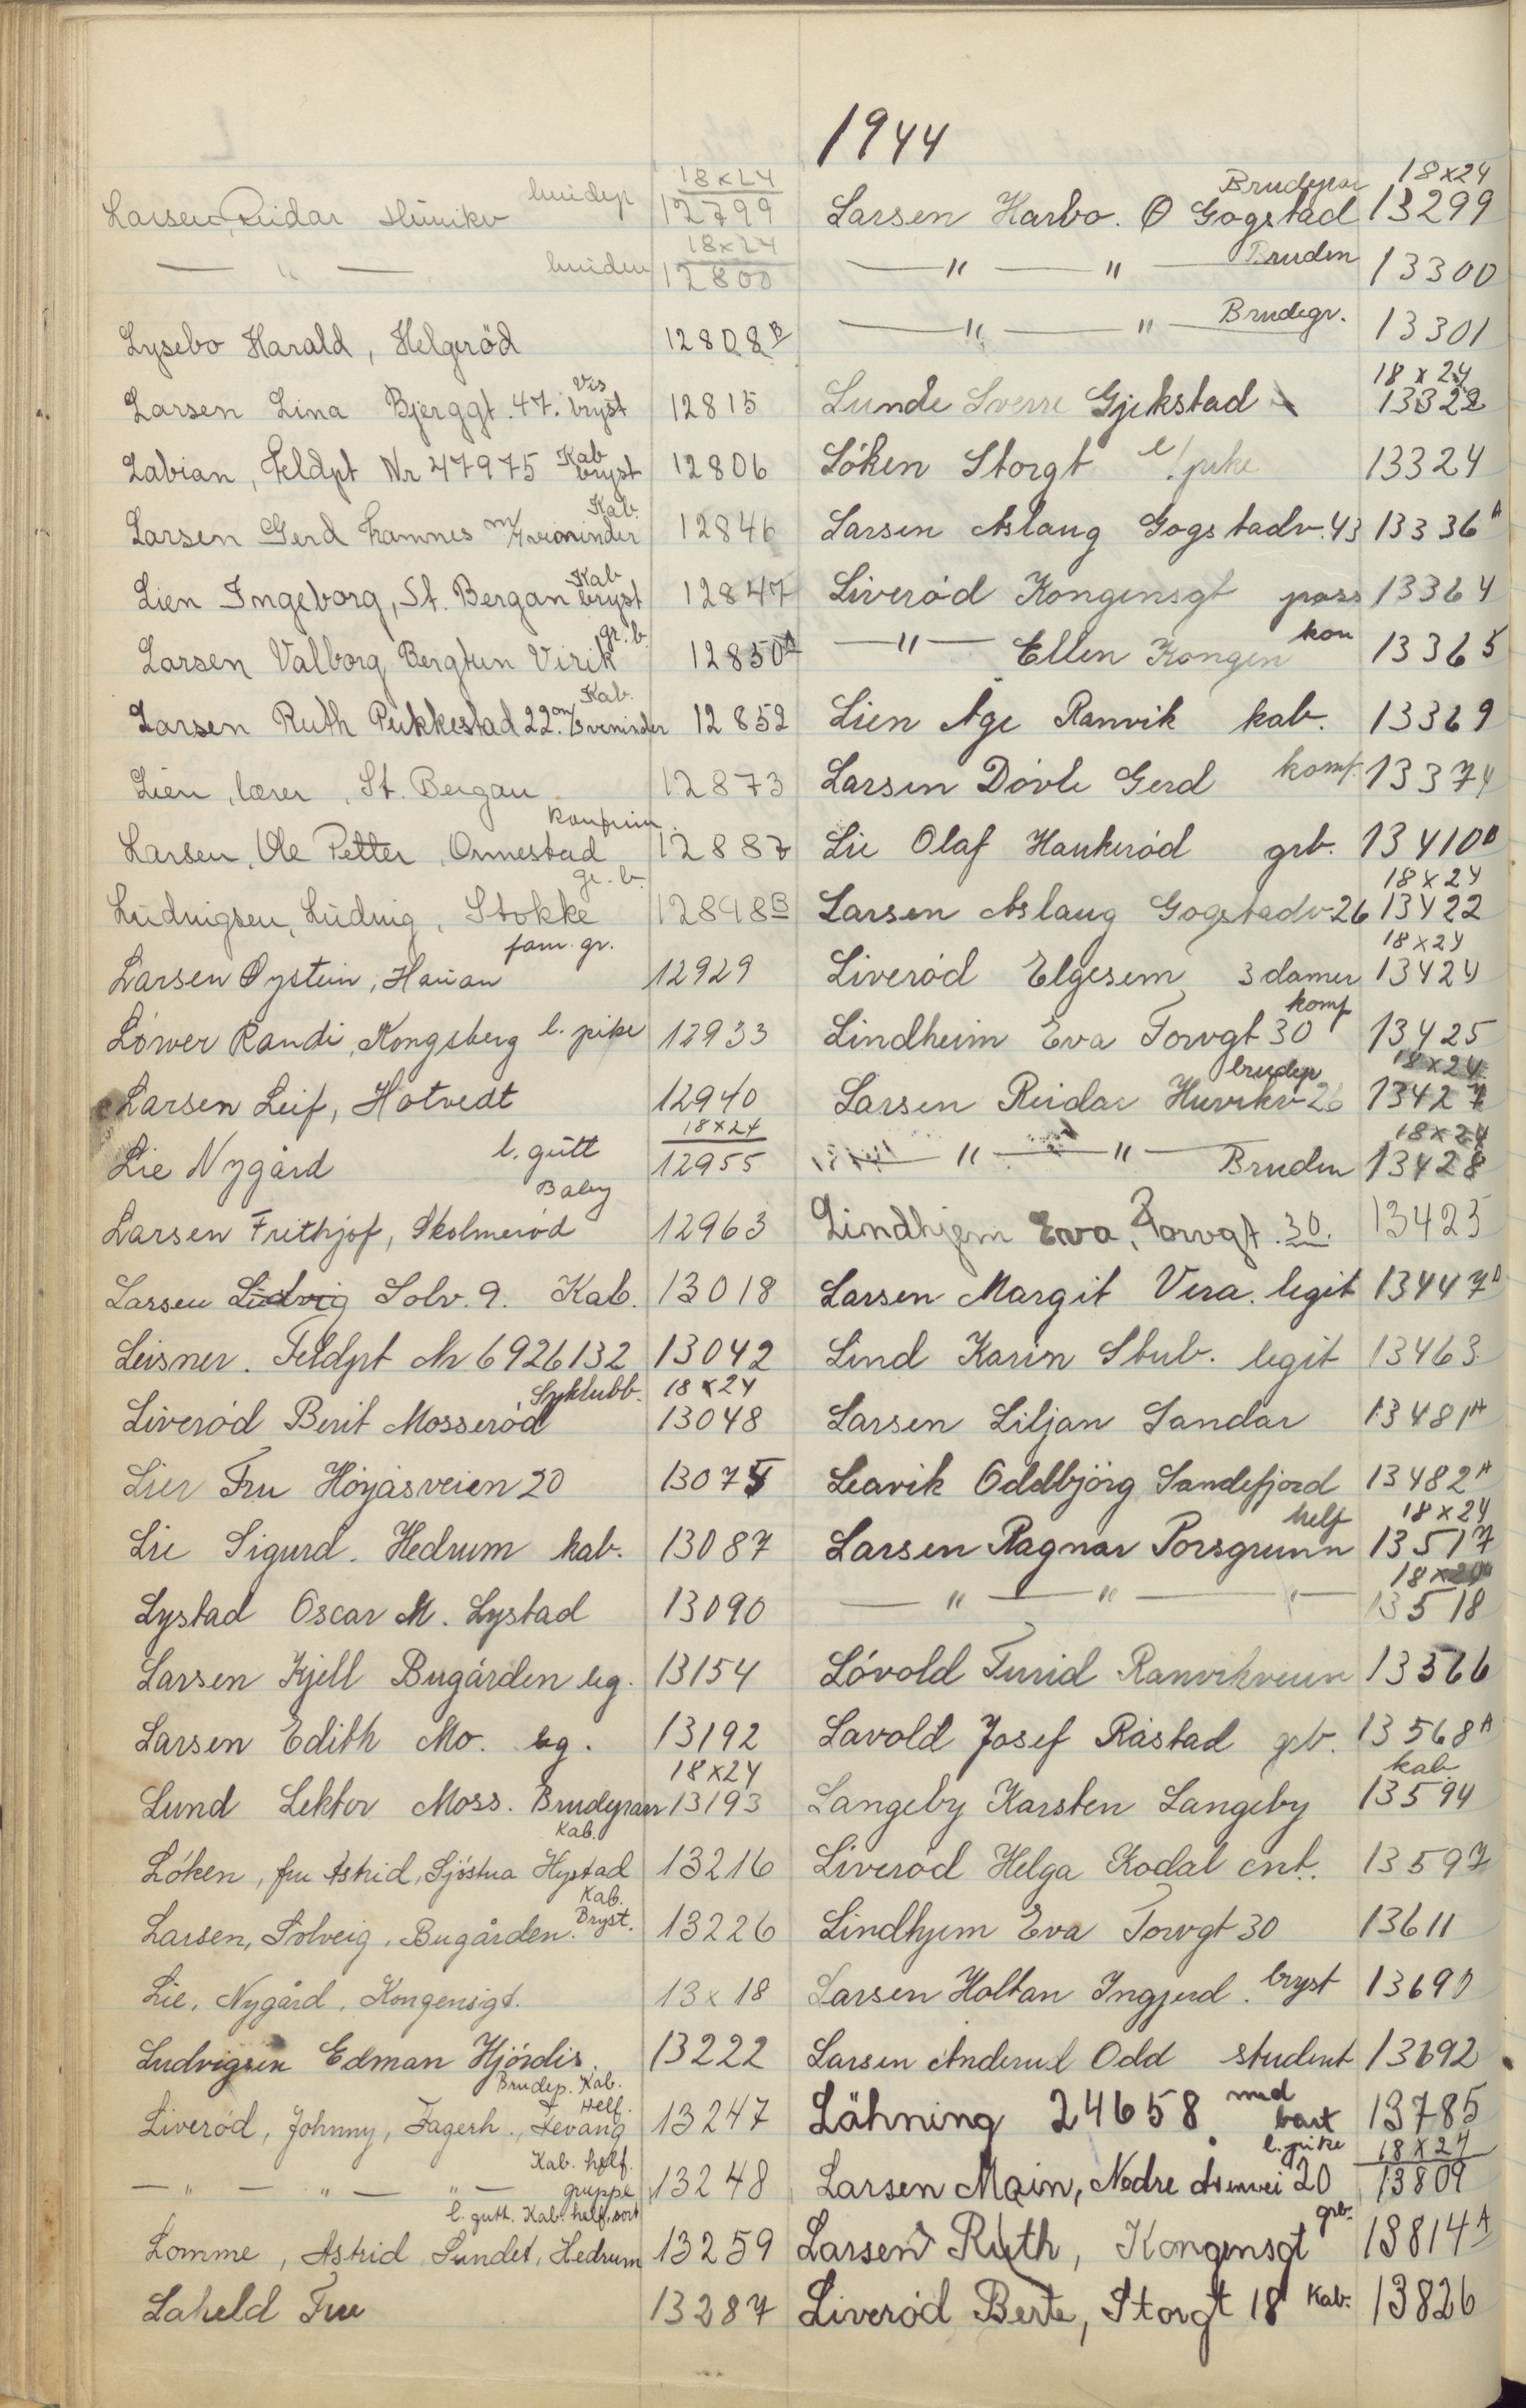 1944
Larsen, Reidar Huvikv brudep 18x24 12799
— " — bruden 18x24 12800
Lysebo Harald, Helgeröd 12808 B
Larsen Lina Bjerggt. 47. Vis bryst 12815
Labian, Feldpt Nr 47975 Kab bryst 12806
Larsen Gerd Framnes m/veninder Kab. 12846
Lien Ingeborg, St. Bergan Kab bryst 12847
Larsen Valborg Bergtun Virik gr.b. 12850 A
Larsen Ruth Pukkestad 22. m/veninder Kab. 12852
Lien, lærer, St. Bergan 12873
Larsen, Ole Petter, Ormestad konfirm. 12887
Lüdvigsen, Lüdvig, Stokke gr.b. 12898 B
Larsen Øystein, Hauan fam. gr. 12929
Löwer Randi, Kongsberg l. pike 12933
Larsen Leif, Hotvedt 12940
Lie Nygård l. gutt 18x24 12955
Larsen Frithjof, Skolmeröd Baby 12963
Larsen Lüdvig Solv. 9. Kab. 13018
Leisner. Feldpt Nr 6926132 13042
Liveröd Berit Mosseröd Syklubb. 18x24 13048
Lier Fru Höyåsveien 20 13075
Lie Sigurd. Hedrum kab. 13087
Lystad Oscar M. Lystad 13090
Larsen Kjell Bugården leg. 13154
Larsen Edith Mo. leg. 13192
Lund Lektor Moss. Brudepaar 18x24 13193
Löken, fru Astrid, Sjöstua Hystad Kab. 13216
Larsen, Solveig, Bugården. Kab. Bryst. 13226
Lie, Nygård, Kongensgt. 13x18
Ludvigsen Edman Hjördis. 13222
Liveröd, Johnny, Fagerh., Fevang Brudep. Kab. Helf. 13247
— " — " — " — Kab. helf. gruppe 13248
Lomme, Astrid Sundet, Hedrum l. gutt. Kab. helf. sort 13259
Laheld Fru 13287
Larsen Harbo. O Gogstad Brudepar 18x24 13299
— " — " — Bruden 13300
— " — " — Brudegr. 13301
Lunde Sverre Gjekstad 18x24 13322
Löken Storgt l/pike 13324
Larsen Aslaug Gogstadv. 43 13336 A
Liveröd Kongensgt pass 13364
— " — Ellen Kongen kon 13365
Lien Åge Ranvik kab. 13369
Larsen Dövle Gerd komf. 13374
Lie Olaf Haukeröd grb. 13410 B
Larsen Aslaug Gogstadv 26 18x24 13422
Liveröd Elgesem 3 damer 18x24 13424
Lindheim Eva Torvgt 30 komf 13425
Larsen Reidar Huvikv 26 brudep 18x24 13427
— " — " — Bruden 18x24 13428
Lindhjem Eva, Torvgt. 30. 13425
Larsen Margit Vera. legit 13447 D
Lind Karin Stub. legit 13463
Larsen Liljan Sandar 13481 A
Leavik Oddbjörg Sandefjord 13482 A
Larsen Ragnar Porsgrunn helf 18x24 13517
— " — " — " — 13518
Lövold Turid Ranvikveien 13566
Lavold Josef Råstad grb. 13568 A
Langeby Karsten Langeby kab 13594
Liveröd Helga Kodal cnt. 13597
Lindhjem Eva Torvgt 30 13611
Larsen Holtan Ingjerd. bryst 13690
Larsen Anderud Odd student 13692
Lähning 24658 med bart 13785
Larsen Main, Nedre Åsenvei 20 l. pike 18x24 13809
Larsen Ruth, Kongensgt grb. 13814 A
Liveröd Berte, Storgt 18 Kab. 13826